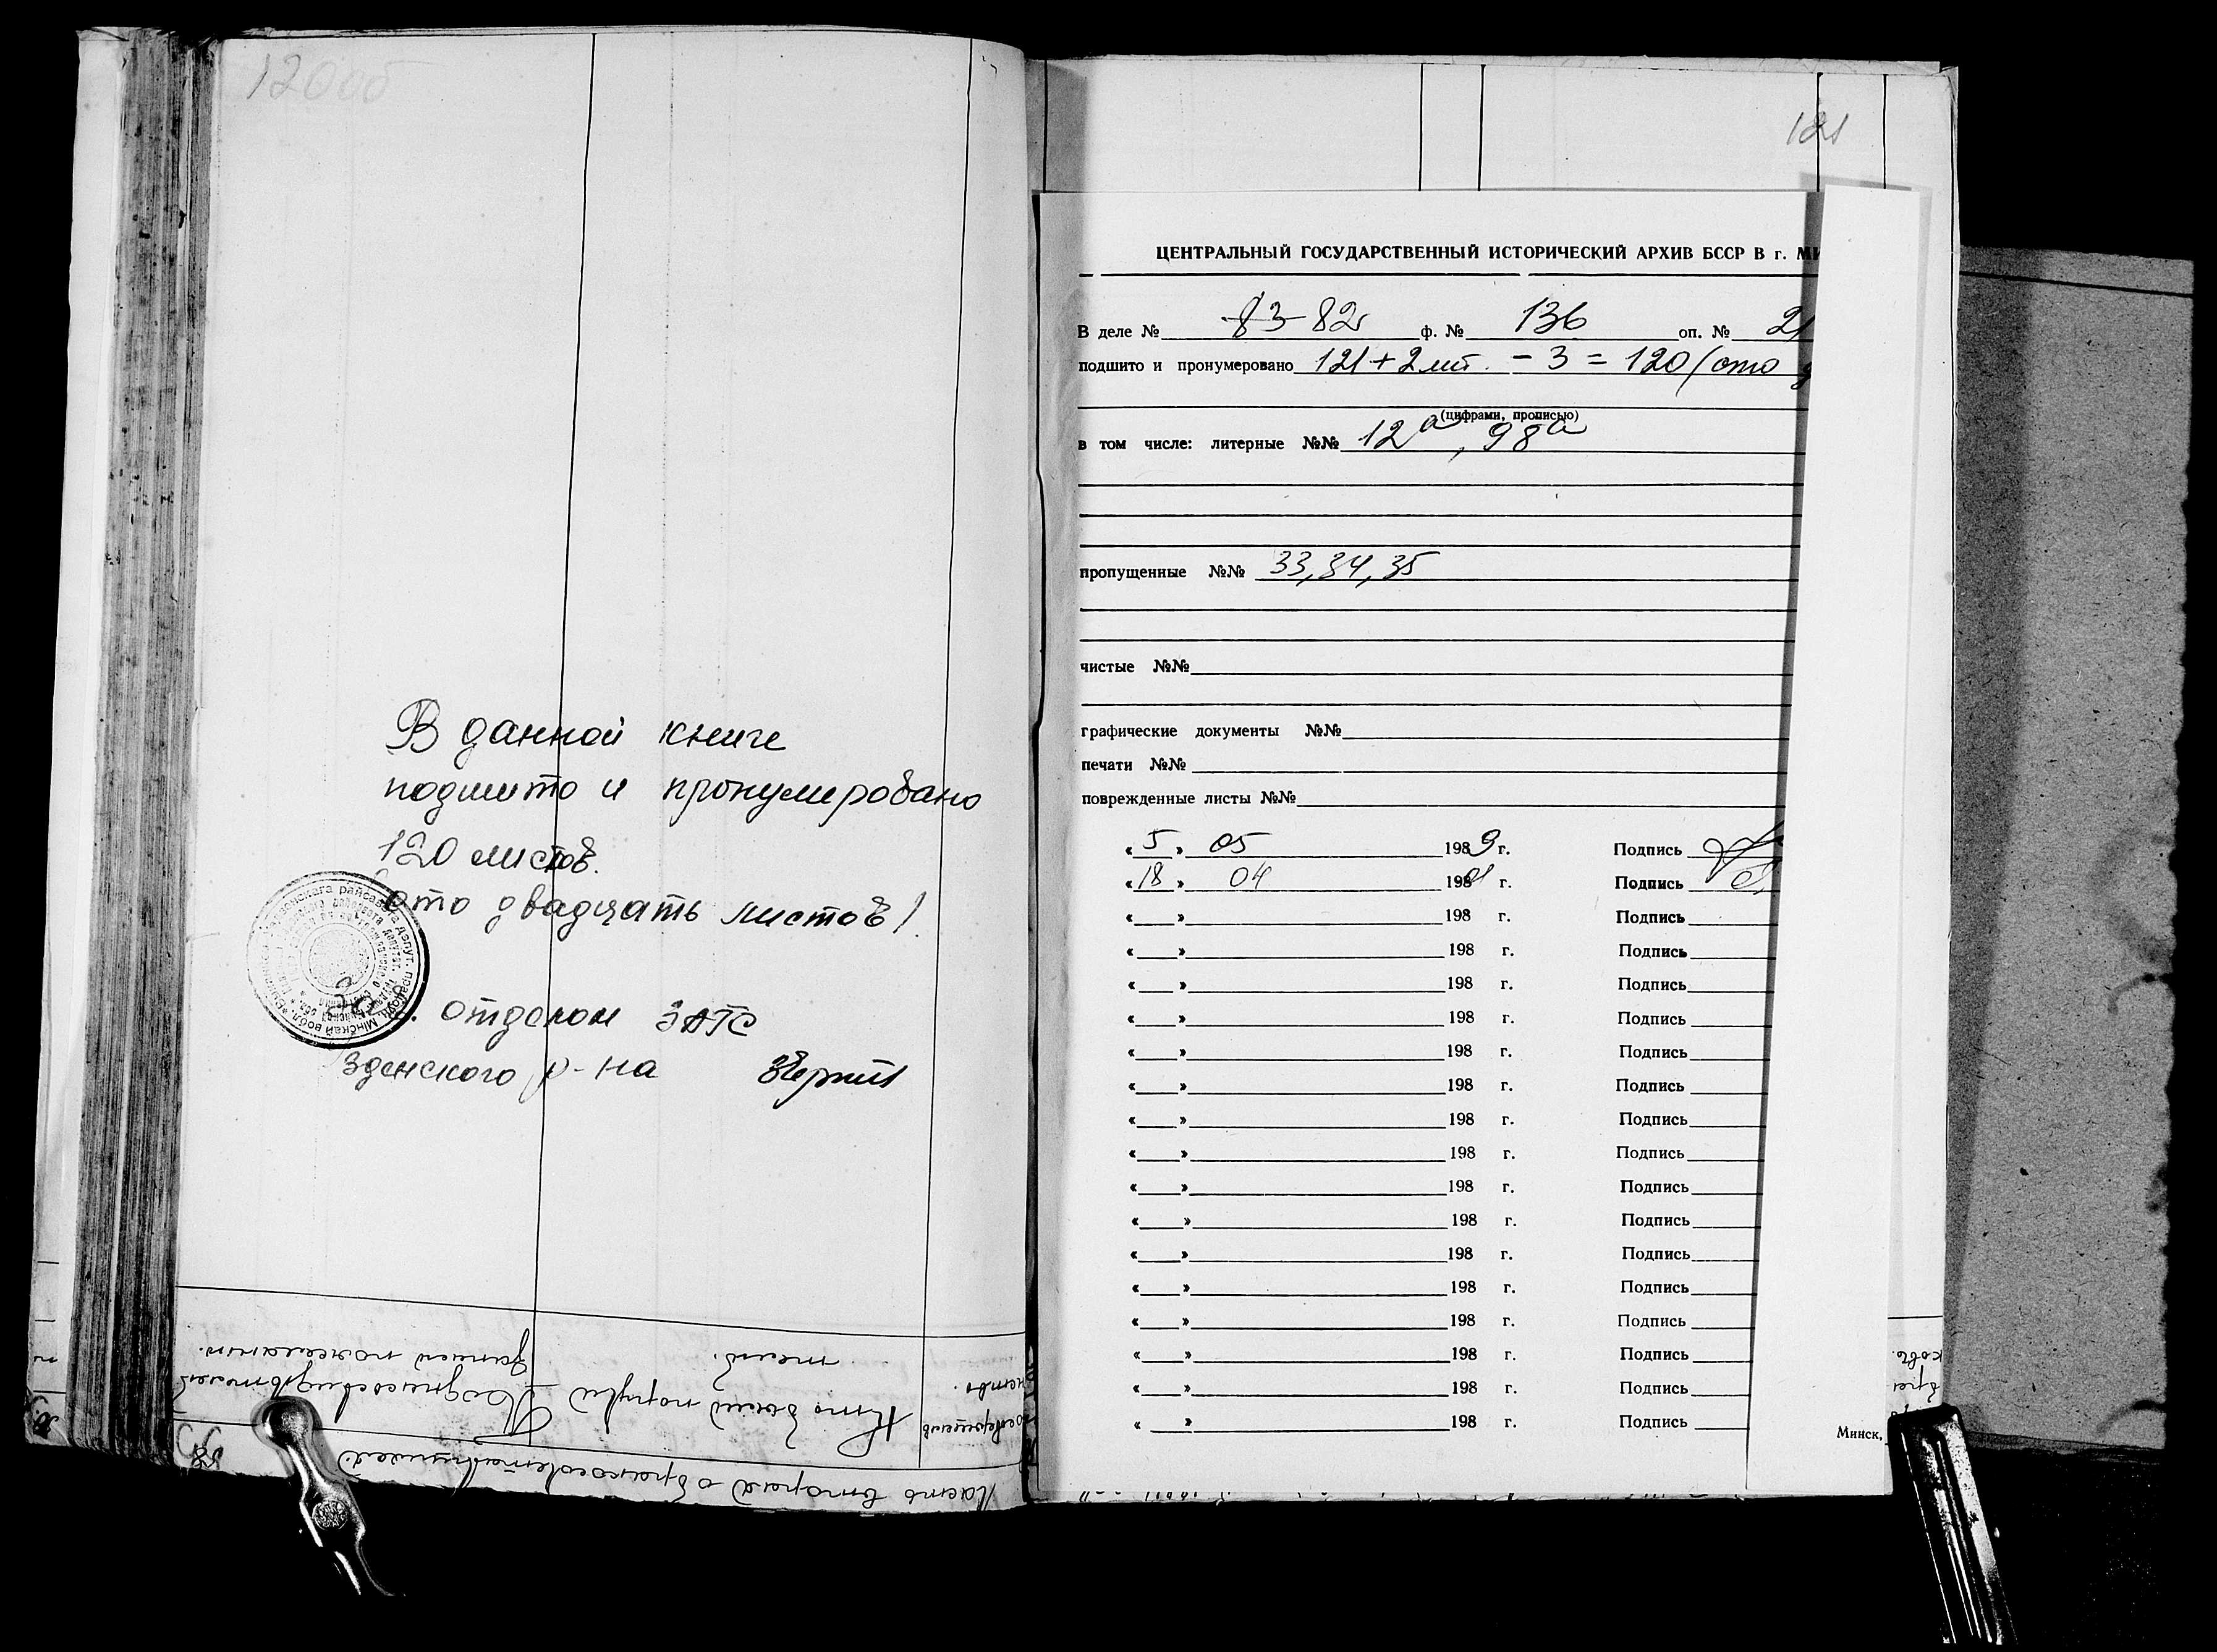 120об
В данной книге
подшито и пронумеровано
120 листов.
(сто двадцать листов).
отделом ЗАГС
Узденского р-на
Часть вторая о бракосочетавшихся.
Кто были поручители.
Подпись свидетелей записи по желанию.
58
121
ЦЕНТРАЛЬНЫЙ ГОСУДАРСТВЕННЫЙ ИСТОРИЧЕСКИЙ АРХИВ БССР В г. МИ
В деле № 83 82 ф. № 136 оп. № 21
подшито и пронумеровано 121+2лит. - 3 = 120 (сто
(цифрами, прописью)
в том числе: литерные №№ 12а, 98а
пропущенные №№ 33, 34, 35
чистые №№
графические документы №№
печати №№
поврежденные листы №№
« 5 » 05 1989 г. Подпись
« 18 » 04 1991 г. Подпись
« » 198 г. Подпись
« » 198 г. Подпись
« » 198 г. Подпись
« » 198 г. Подпись
« » 198 г. Подпись
« » 198 г. Подпись
« » 198 г. Подпись
« » 198 г. Подпись
« » 198 г. Подпись
« » 198 г. Подпись
« » 198 г. Подпись
« » 198 г. Подпись
« » 198 г. Подпись
« » 198 г. Подпись
« » 198 г. Подпись
« » 198 г. Подпись
Минск,